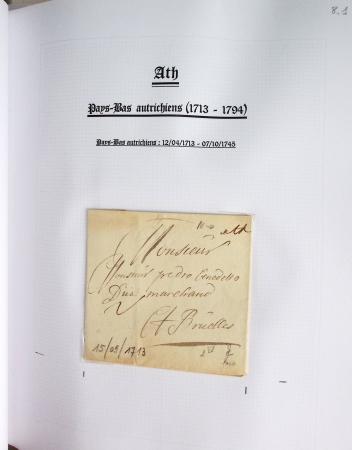 8.1
Ath
Pays-Bas autrichiens (1713 - 1794)
Pays-Bas autrichiens : 12/04/1713 - 07/10/1745
ath
Monsieur
Monsieur pedro benedetto
marchand
Bruelles
15/09/1713